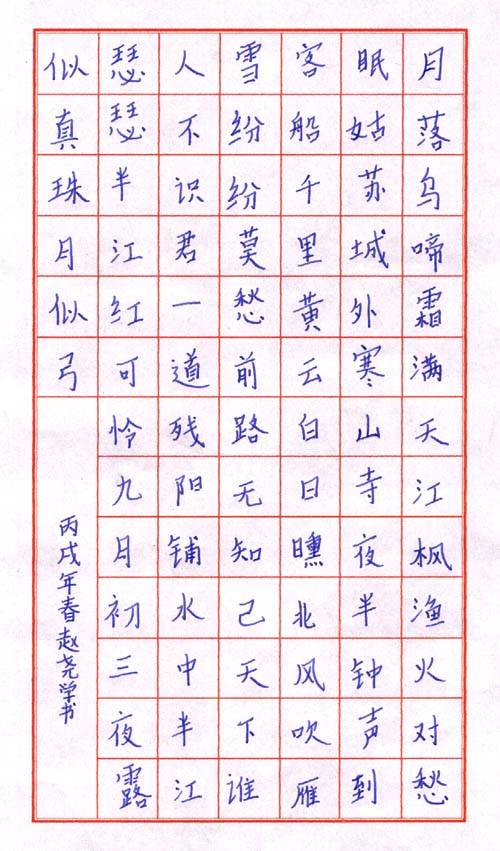 月落乌啼霜满天江枫渔火对愁
眠姑苏城外寒山寺夜半钟声到
客船千里黄云白日曛北风吹雁
雪纷纷莫愁前路无知己天下谁
人不识君一道残阳铺水中半江
瑟瑟半江红可怜九月初三夜露
似真珠月似弓
丙戌年春赵尧学书